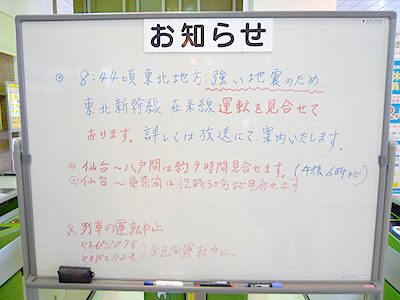 お知らせ
◎ 8:44頃東北地方、強い地震のため
東北新幹線、在来線運転を見合せて
おります。詳しくは放送にて、案内いたします。
◎仙台～八戸間は約9時間見合せます。(午後6時まで)
◎仙台～東京間は12時30分まで見合せます
列車の運転中止
やまびこ107号
全区間運転中止